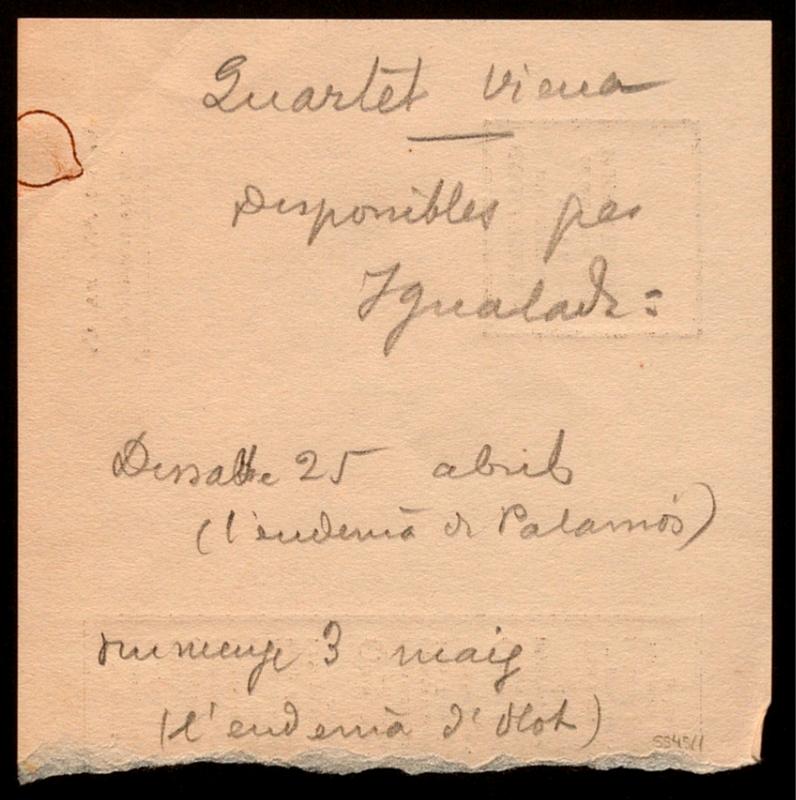 Quartet Viena
Disponibles per
Igualada:
Dissabte 25 abril
(l'endemà de Palamós)
diumenge 3 maig
(l'endemà d'Olot)
5545/1